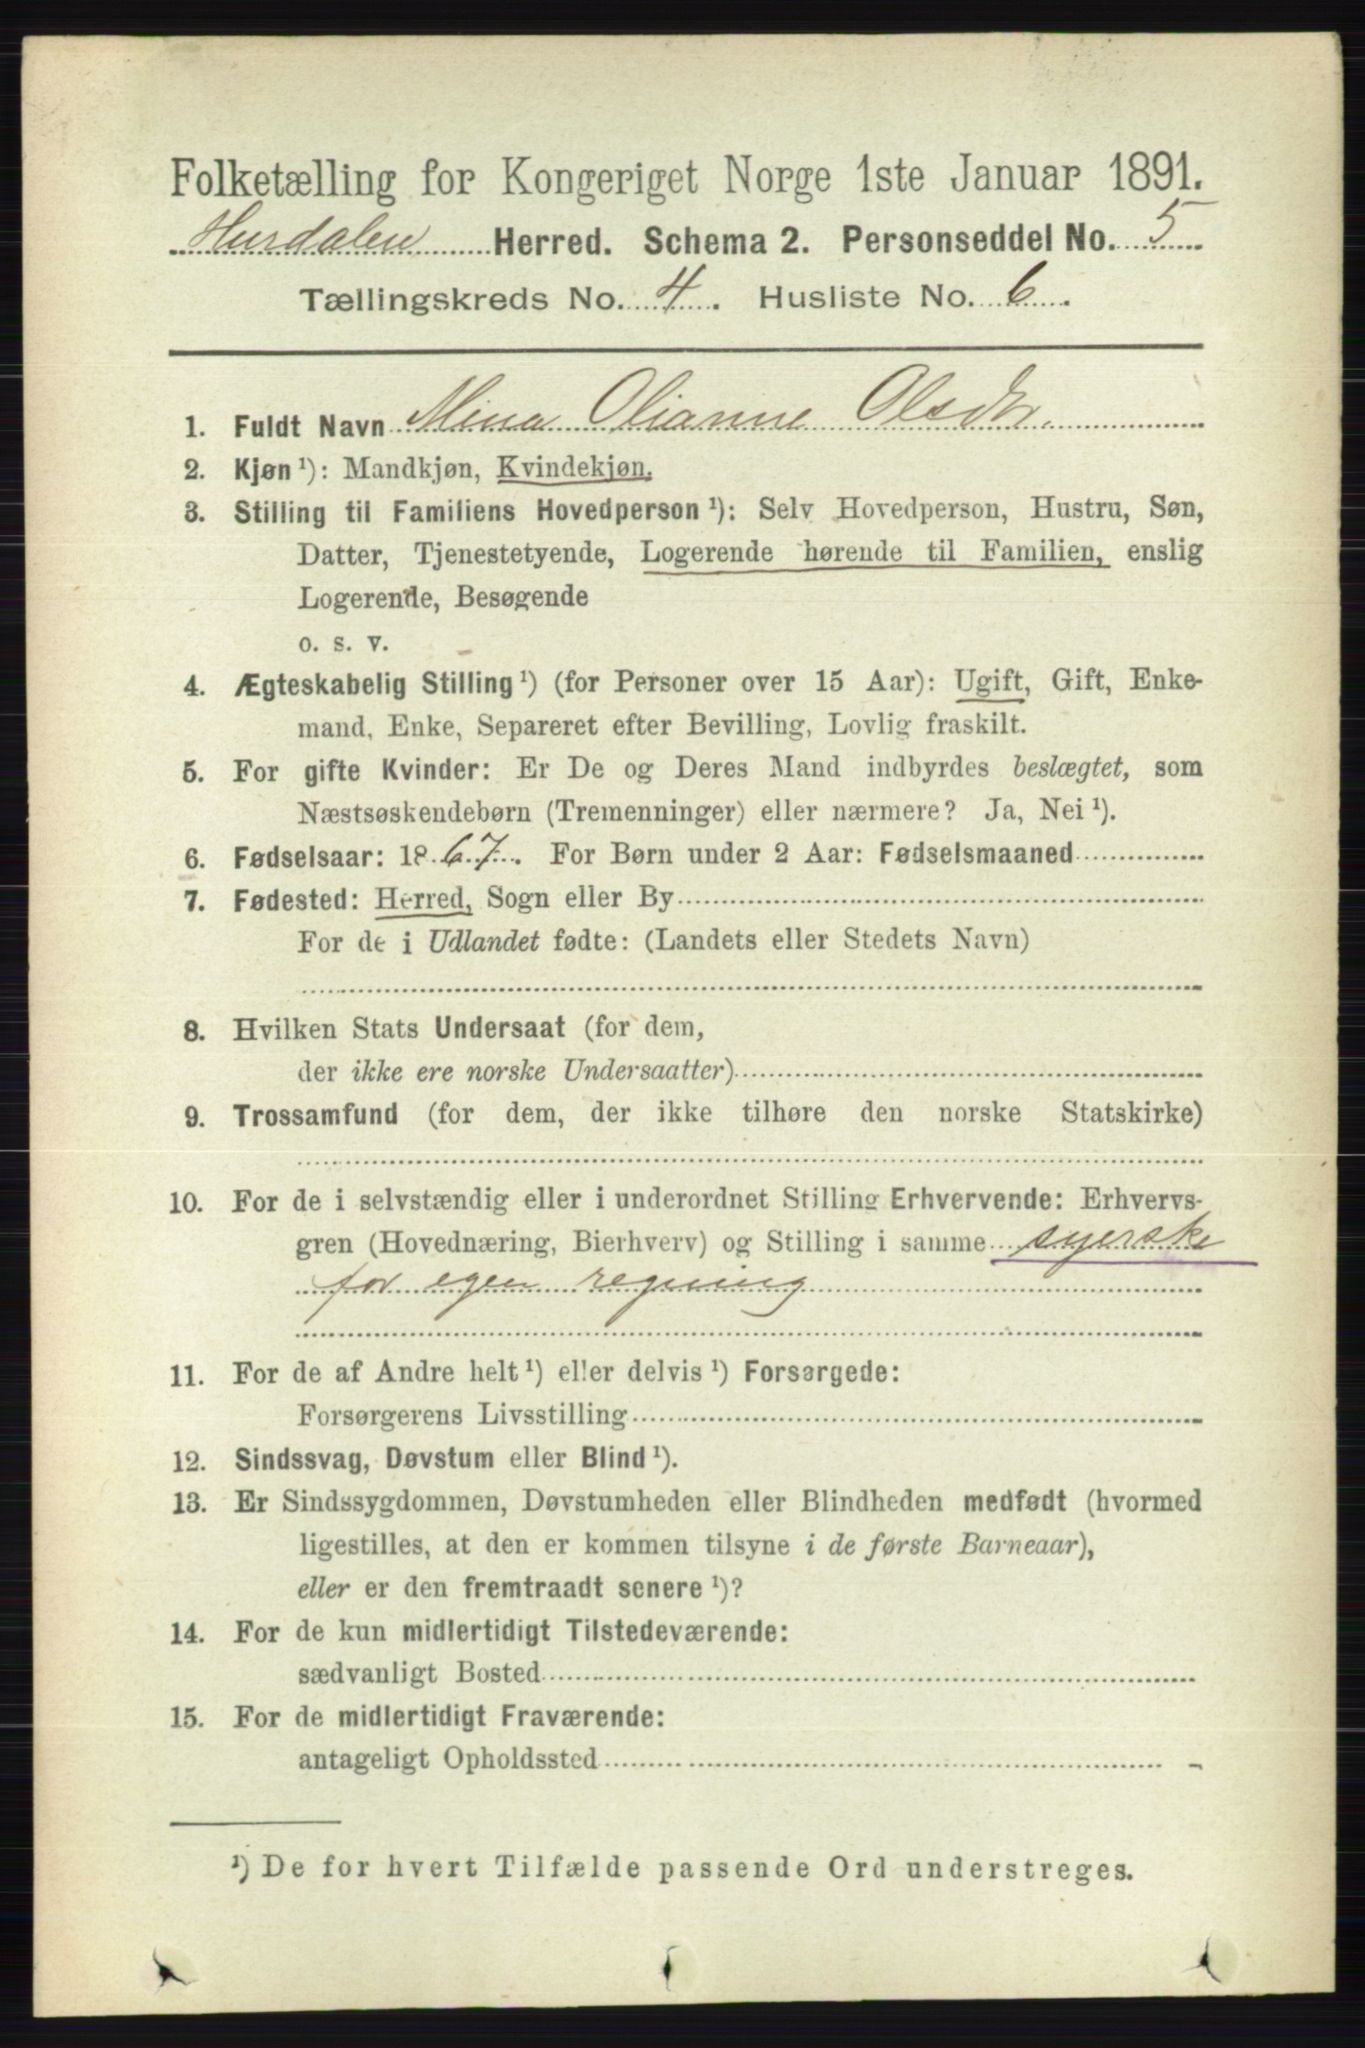 Folketælling for Kongeriget Norge 1ste Januar 1891.
Hurdalen Herred. Schema 2. Personseddel No. 5
Tællingskreds No. 4. Husliste No. 6.
1. Fuldt Navn Mina Olianne Olsdtr.
2. Kjøn ¹): Mandkjøn, Kvindekjøn,
3. Stilling til Familiens Hovedperson ¹): Selv Hovedperson, Hustru, Søn,
Datter, Tjenestetyende, Logerende hørende til Familien, enslig
Logerende, Besøgende
o. s. v.
4. Ægteskabelig Stilling ¹) (for Personer over 15 Aar): Ugift, Gift, Enke-
mand, Enke, Separeret efter Bevilling, Lovlig fraskilt.
5. For gifte Kvinder: Er De og Deres Mand indbyrdes beslægtet, som
Næstsøskendebørn (Tremenninger) eller nærmere? Ja, Nei ¹).
6. Fødselsaar: 1867. For Børn under 2 Aar: Fødselsmaaned
7. Fødested: Herred, Sogn eller By
For de i Udlandet fødte: (Landets eller Stedets Navn)
8. Hvilken Stats Undersaat (for dem,
der ikke ere norske Undersaatter)
9. Trossamfund (for dem, der ikke tilhøre den norske Statskirke)
10. For de i selvstændig eller i underordnet Stilling Erhvervende: Erhvervs-
gren (Hovednæring, Bierhverv) og Stilling i samme syerske
for egen regning
11. For de af Andre helt ¹) eller delvis ¹) Forsørgede:
Forsørgerens Livsstilling
12. Sindssvag, Døvstum eller Blind ¹).
13. Er Sindssygdommen, Døvstumheden eller Blindheden medfødt (hvormed
ligestilles, at den er kommen tilsyne i de første Barneaar),
eller er den fremtraadt senere ¹)?
14. For de kun midlertidigt Tilstedeværende:
sædvanligt Bosted
15. For de midlertidigt Fraværende:
antageligt Opholdssted
¹) De for hvert Tilfælde passende Ord understreges.